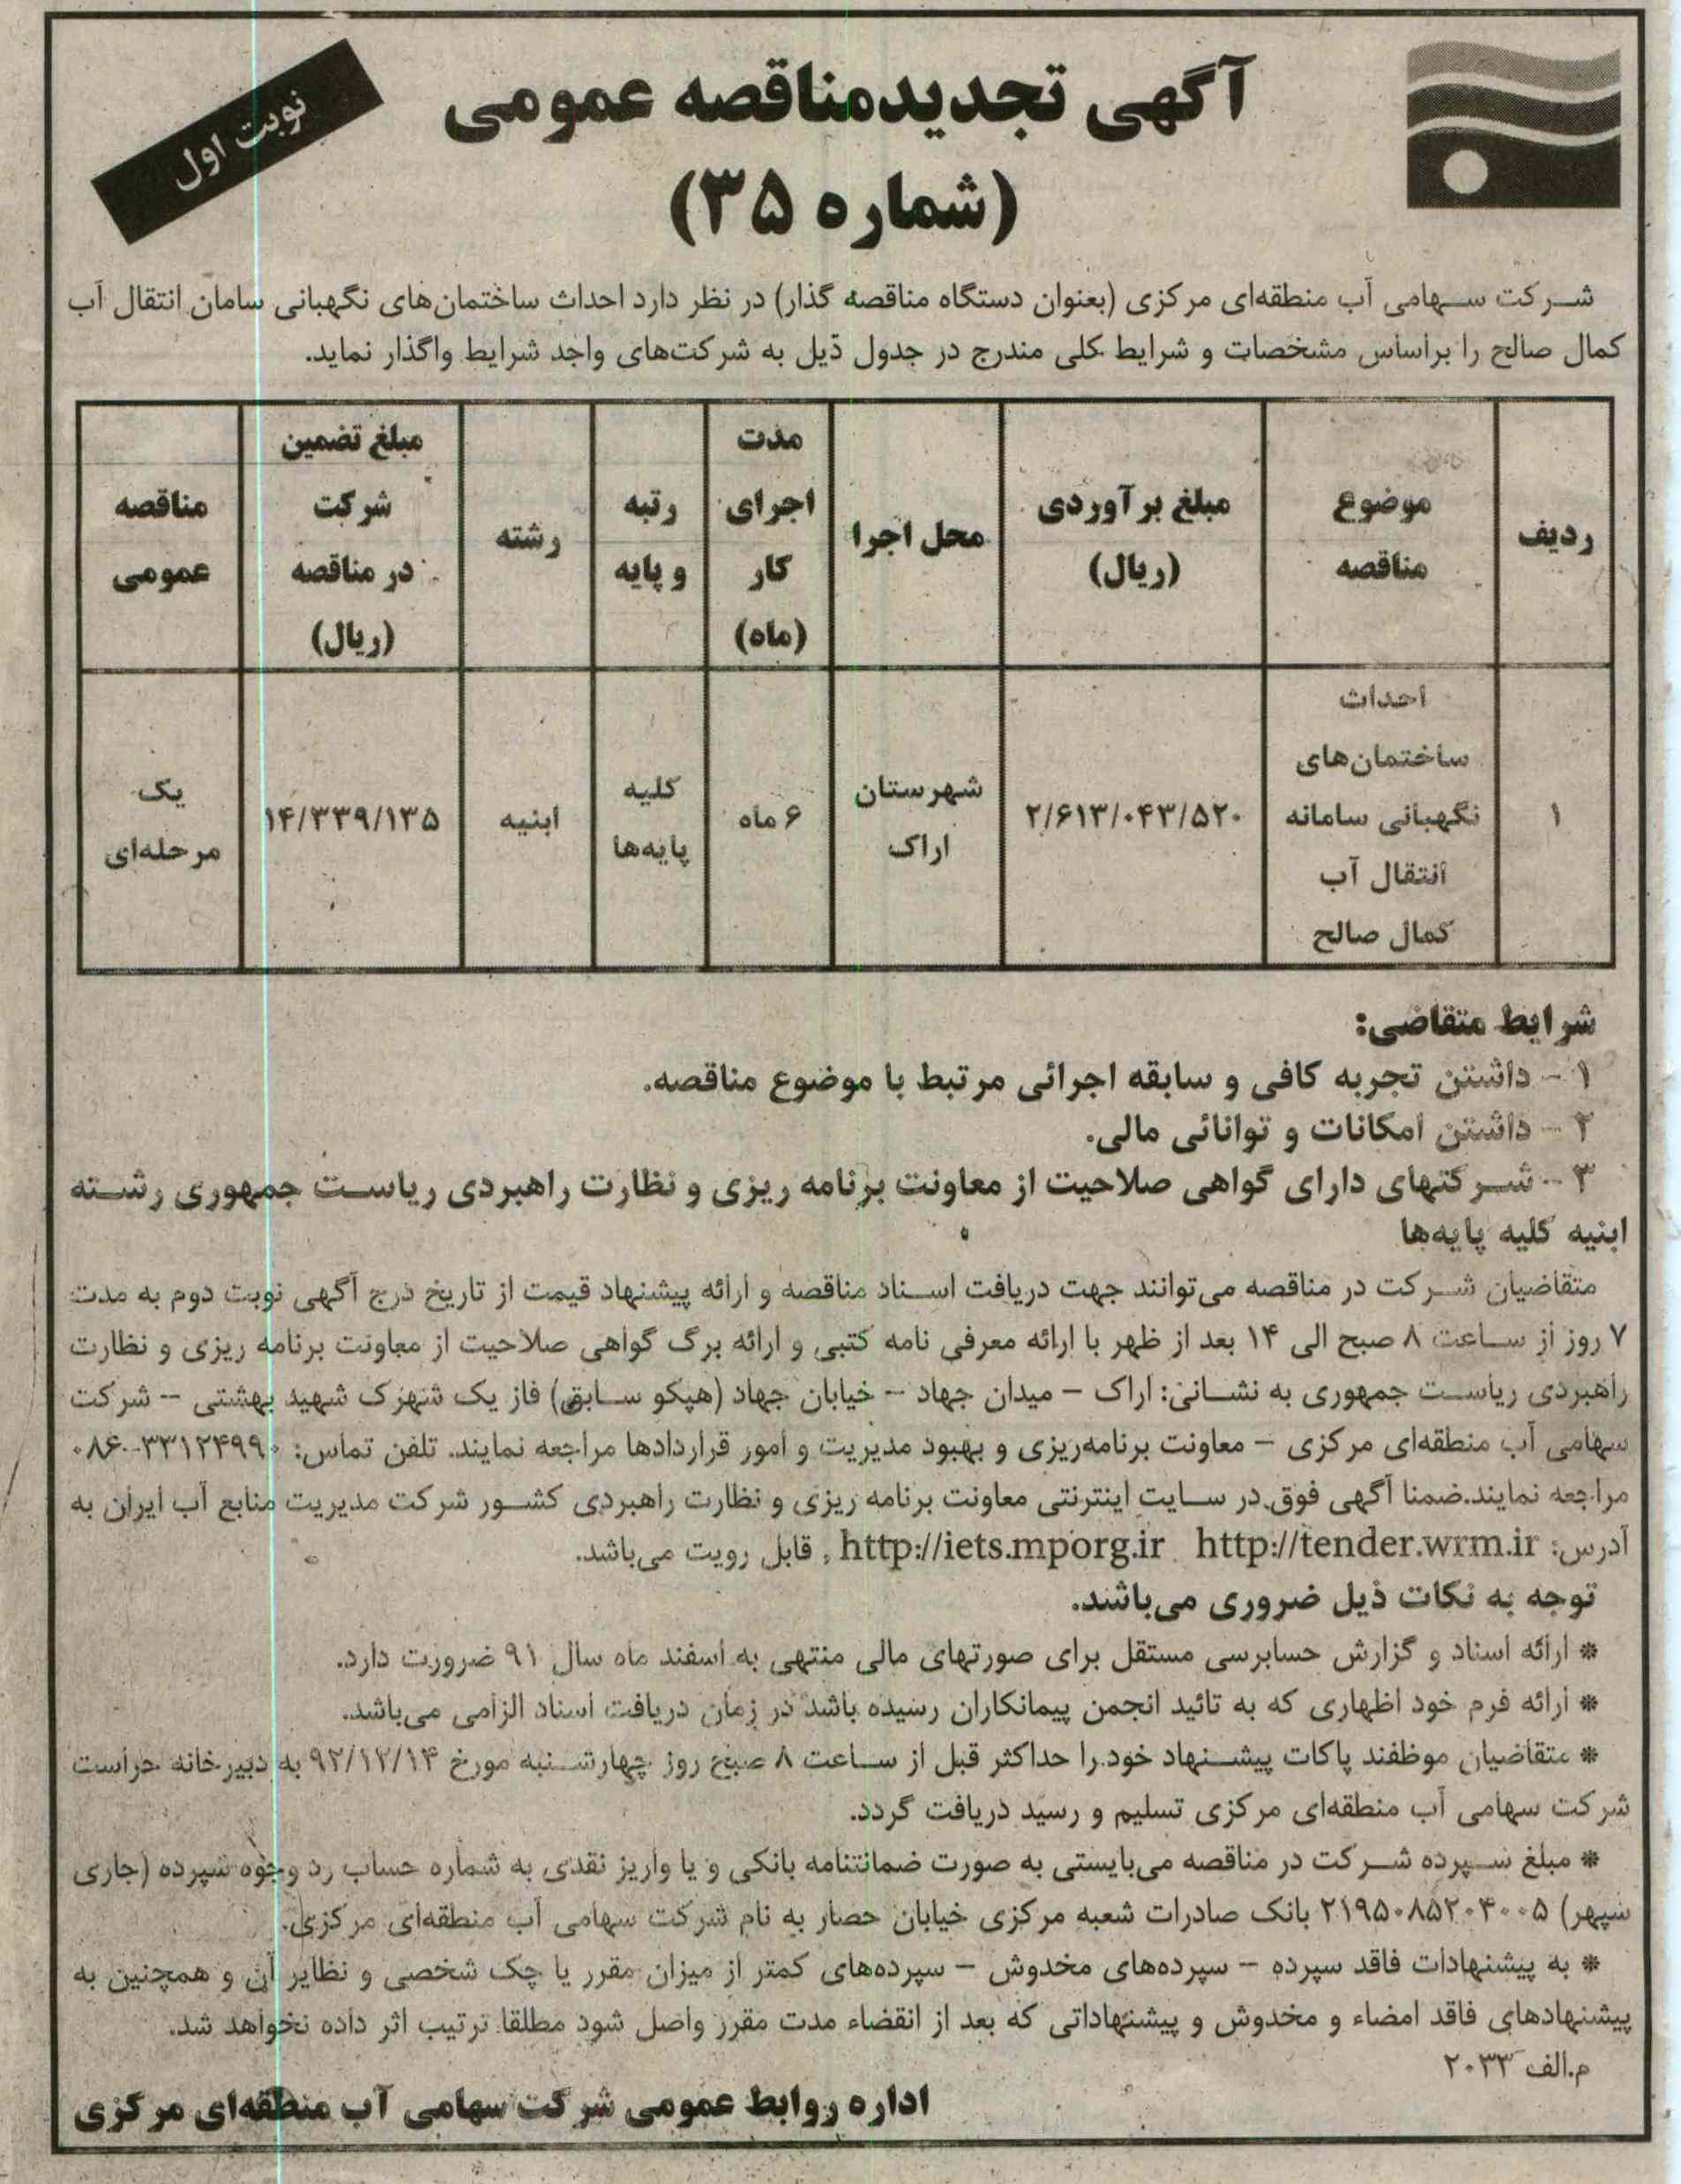 آگهی تجدیدمناقصه عمومی
نوبت اول
(شماره ۳۵)
شرکت سهامی آب منطقه‌ای مرکزی (بعنوان دستگاه مناقصه گذار) در نظر دارد احداث ساختمان‌های نگهبانی سامان انتقال آب
کمال صالح را براساس مشخصات و شرایط کلی مندرج در جدول ذیل به شرکت‌های واجد شرایط واگذار نماید.
ردیف
موضوع
مناقصه
مبلغ برآوردی
(ریال)
محل اجرا
مدت
اجرای
کار
(ماه)
رتبه
و پایه
رشته
مبلغ تضمین
شرکت
در مناقصه
(ریال)
مناقصه
عمومی
۱
احداث
ساختمان‌های
نگهبانی سامانه
انتقال آب
کمال صالح
۲/۶۱۳/۰۴۳/۵۲۰
شهرستان
اراک
۶ ماه
کلیه
پایه‌ها
ابنیه
۱۴/۳۳۹/۱۳۵
یک
مرحله‌ای
شرایط متقاضی:
۱ - داشتن تجربه کافی و سابقه اجرائی مرتبط با موضوع مناقصه.
۲ - داشتن امکانات و توانائی مالی.
۳ - شرکتهای دارای گواهی صلاحیت از معاونت برنامه ریزی و نظارت راهبردی ریاست جمهوری رشته
ابنیه کلیه پایه‌ها
متقاضیان شرکت در مناقصه می‌توانند جهت دریافت اسناد مناقصه و ارائه پیشنهاد قیمت از تاریخ درج آگهی نوبت دوم به مدت
۷ روز از ساعت ۸ صبح الی ۱۴ بعد از ظهر با ارائه معرفی نامه کتبی و ارائه برگ گواهی صلاحیت از معاونت برنامه ریزی و نظارت
راهبردی ریاست جمهوری به نشانی: اراک - میدان جهاد - خیابان جهاد (هپکو سابق) فاز یک شهرک شهید بهشتی - شرکت
سهامی آب منطقه‌ای مرکزی - معاونت برنامه‌ریزی و بهبود مدیریت و امور قراردادها مراجعه نمایند. تلفن تماس: ۳۳۱۲۴۹۹۰-۰۸۶
مراجعه نمایند.ضمنا آگهی فوق در سایت اینترنتی معاونت برنامه ریزی و نظارت راهبردی کشور شرکت مدیریت منابع آب ایران به
آدرس: http://tender.wrm.ir http://iets.mporg.ir , قابل رویت می‌باشد.
توجه به نکات ذیل ضروری می‌باشد.
* ارائه اسناد و گزارش حسابرسی مستقل برای صورتهای مالی منتهی به اسفند ماه سال ۹۱ ضرورت دارد.
* ارائه فرم خود اظهاری که به تائید انجمن پیمانکاران رسیده باشد در زمان دریافت اسناد الزامی می‌باشد.
* متقاضیان موظفند پاکات پیشنهاد خود را حداکثر قبل از ساعت ۸ صبح روز چهارشنبه مورخ ۹۲/۱۲/۱۴ به دبیرخانه حراست
شرکت سهامی آب منطقه‌ای مرکزی تسلیم و رسید دریافت گردد.
* مبلغ سپرده شرکت در مناقصه می‌بایستی به صورت ضمانتنامه بانکی و یا واریز نقدی به شماره حساب رد وجوه سپرده (جاری
سپهر) ۲۱۹۵۰۸۵۲۰۴۰۰۵ بانک صادرات شعبه مرکزی خیابان حصار به نام شرکت سهامی آب منطقه‌ای مرکزی.
* به پیشنهادات فاقد سپرده - سپرده‌های مخدوش - سپرده‌های کمتر از میزان مقرر یا چک شخصی و نظایر آن و همچنین به
پیشنهادهای فاقد امضاء و مخدوش و پیشنهاداتی که بعد از انقضاء مدت مقرر واصل شود مطلقا ترتیب اثر داده نخواهد شد.
م.الف ۲۰۳۳
اداره روابط عمومی شرکت سهامی آب منطقه‌ای مرکزی